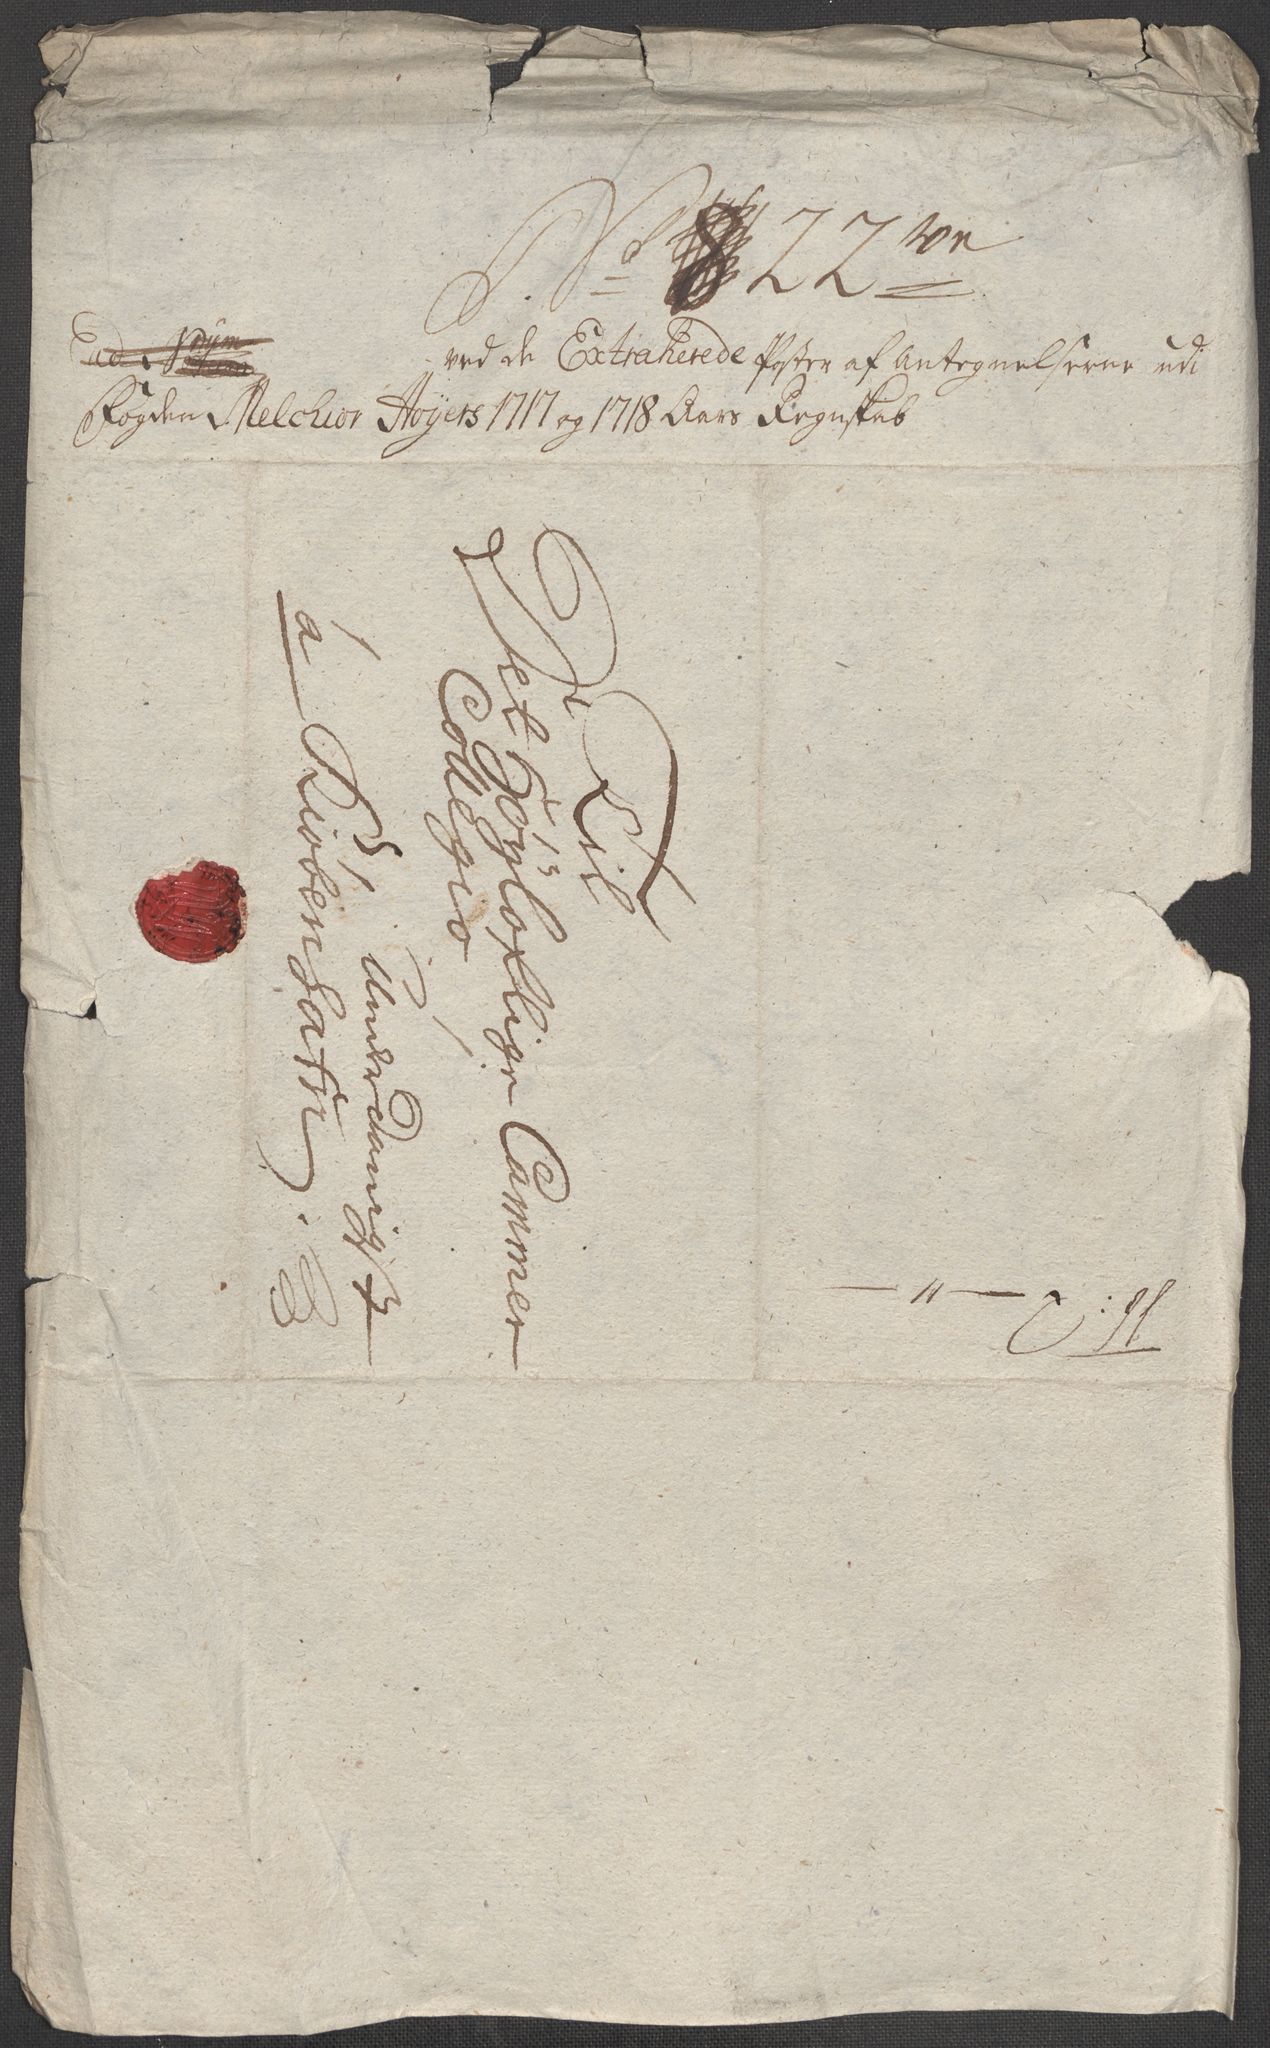 No 22de
ved de Extraherede Poster af Antegnelserne udi
Fogden Melchior Høyers 1717 og 1718 Aars Regnskab
Til
Det Høyloflige Cammer
Collegio
Underdanigst
á Kiøbenhafn